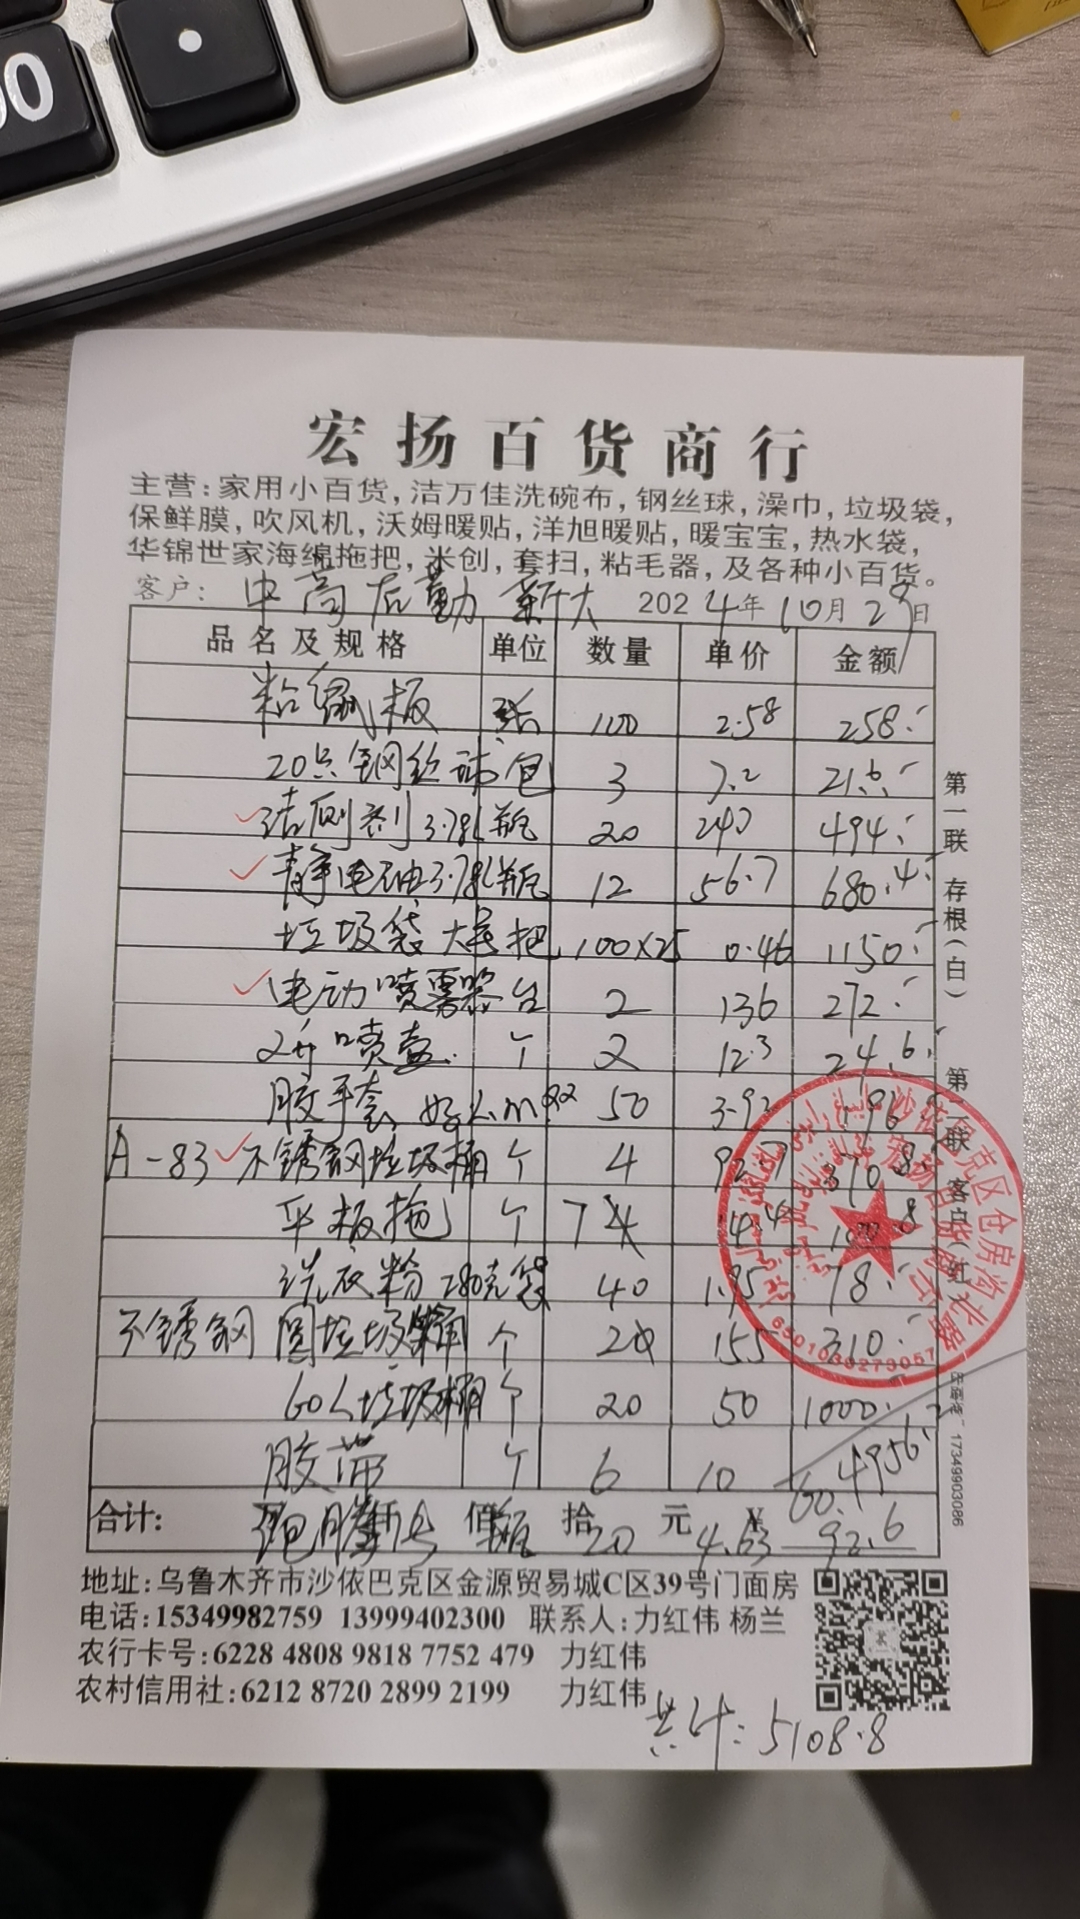 00
宏扬百货商行
主营:家用小百货,洁万佳洗碗布,钢丝球,澡巾,垃圾袋,
保鲜膜,吹风机,沃姆暖贴,洋旭暖贴,暖宝宝,热水袋,
华锦世家海绵拖把,米创,套扫,粘毛器,及各种小百货。
客户: 中商后勤 新大 2024年10月29日
品名及规格 单位 数量 单价 金额
粘鼠板 张 100 2.58 258.
20点钢丝球 包 3 7.2 21.6.
洁厕剂3.78L 瓶 20 247 494.
静电油3.78L 瓶 12 56.7 680.4.
垃圾袋 大号 把 100X25 0.46 1150.
电动喷雾器 台 2 136 272.
2升喷壶. 个 2 12.3 24.6.
胶手套 好 双 50 3.92 196
A-83 不锈钢垃圾桶 个 4 92.7 370.8
平板拖 个 7 14.4 100.8
洗衣粉 280克 袋 40 1.95 78.
不锈钢 圆垃圾桶 个 2 155 310.
60L垃圾桶 个 20 50 1000.
胶带 个 6 10 60. 4956.2
合计: 佰 拾 元 ¥
瓶 20 4.63 92.6
地址:乌鲁木齐市沙依巴克区金源贸易城C区39号门面房
电话:15349982759 13999402300 联系人:力红伟 杨兰
农行卡号:6228 4808 9818 7752 479 力红伟
农村信用社:6212 8720 2899 2199 力红伟
共计:5108.8
第一联 存根(白)
第二联 客户(红)
17349903086
6501030273057